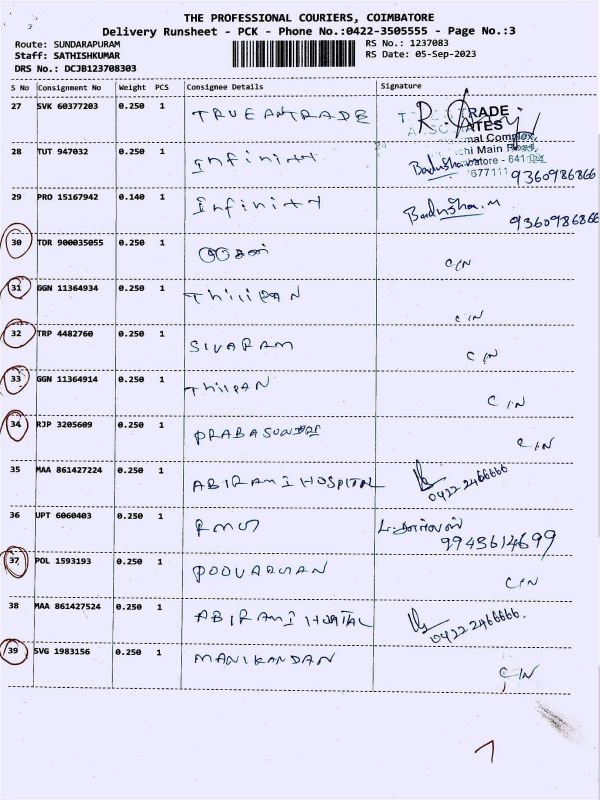 THE PROFESSIONAL COURIERS, COIMBATORE
Delivery Runsheet - PCK - Phone No.:0422-3505555 - Page No.:3
Route: SUNDARAPURAM RS No.: 1237083
Staff: SATHISHKUMAR RS Date: 05-Sep-2023
DRS No.: DCJB123708303
S No Consignment No Weight PCS Consignee Details Signature
27 SVK 60377203 0.250 1 TRUEANTRADE
TRADE
ATES
mal Complex,
chi Main Road,
batore - 641
677111
28 TUT 947032 0.250 1 Infinitt Badusha 9360986866
29 PRO 15167942 0.140 1 Infinitt Badusha.M
9360986866
30 TDR 900035055 0.250 1 C/N
31 GGN 11364934 0.250 1 Thilipan C/N
32 TRP 4482760 0.250 1 SIVARAM C/N
33 GGN 11364914 0.250 1 Thilpan C/N
34 RJP 3205609 0.250 1 C/N
35 MAA 861427224 0.250 1 ABIRAMI HOSPITAL 0422 2466666
36 UPT 6060403 0.250 1 9943614699
37 POL 1593193 0.250 1 C/N
38 MAA 861427524 0.250 1 ABIRAMI 0422 2466666.
39 SVG 1983156 0.250 1 MANIKANDAN C/N